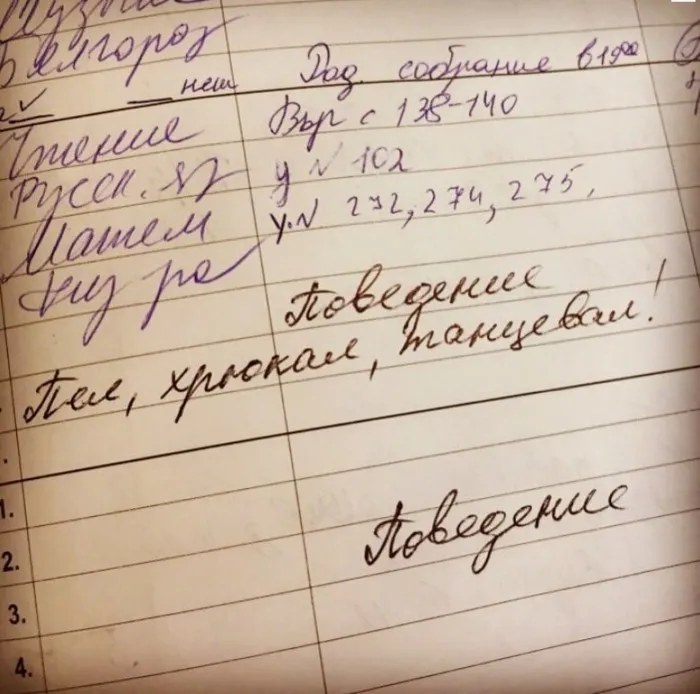 Белгороз
нет Род собрание в 19 00
Чтение Выр с 138-140
Русск. яз у N 102
Матем у. N 272, 274, 275,
физ ра
Поведение
Пел, хрюкал, танцевал!
Поведение
1.
2.
3.
4.